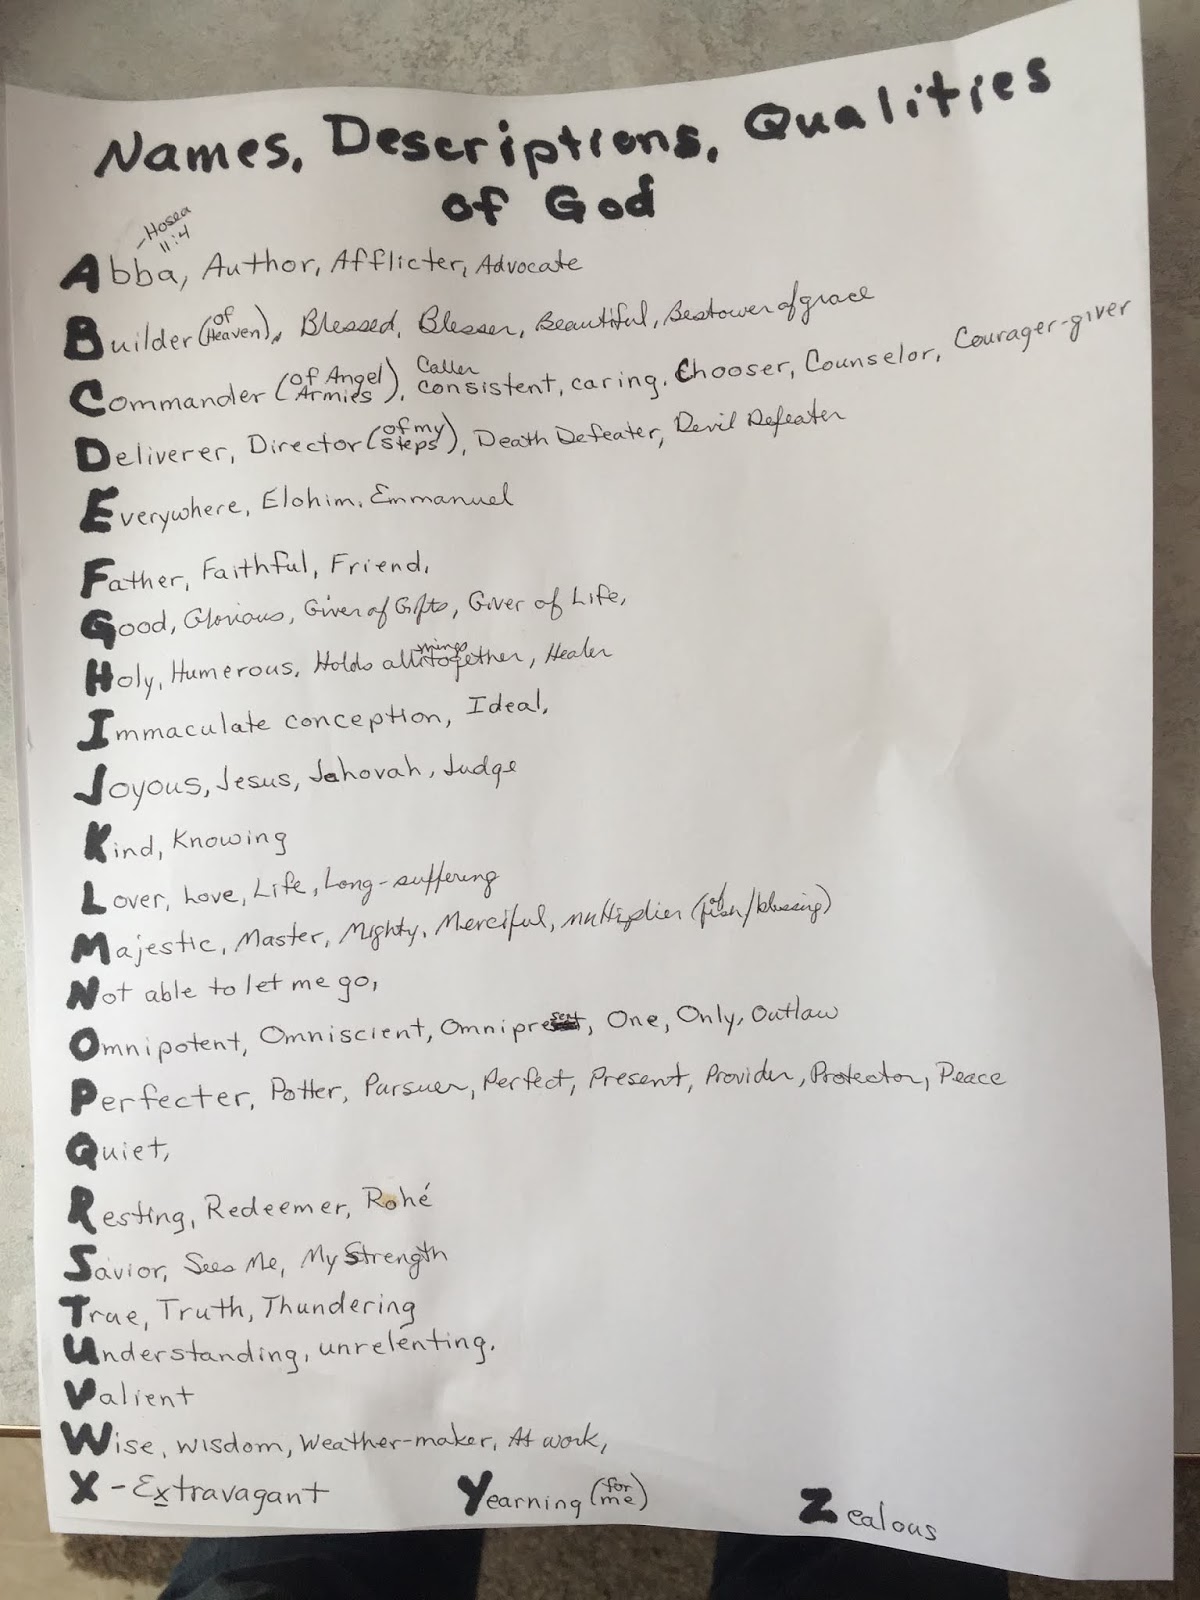 Names, Descriptions, Qualities
of God
-Hosea
11:4
Abba, Author, Afflicter, Advocate
Builder (of Heaven), Blessed, Blesser, Beautiful, Bestower of grace
Commander (of Angel Armies), Caller consistent, caring, Chooser, Counselor, Courager-giver
Deliverer, Director (of my steps), Death Defeater, Devil Defeater
Everywhere, Elohim, Emmanuel
Father, Faithful, Friend,
Good, Glorious, Giver of Gifts, Giver of Life,
Holy, Humerous, Holds all things together, Healer
Immaculate conception, Ideal,
Joyous, Jesus, Jehovah, Judge
Kind, Knowing
Lover, Love, Life, Long-suffering
Majestic, Master, Mighty, Merciful, multiplier (of fish/blessing)
Not able to let me go,
Omnipotent, Omniscient, Omnipresent, One, Only, Outlaw
Perfecter, Potter, Pursuer, Perfect, Present, Provider, Protector, Peace
Quiet,
Resting, Redeemer, Rohé
Savior, Sees Me, My Strength
True, Truth, Thundering
Understanding, unrelenting.
Valient
Wise, wisdom, Weather-maker, At work,
X - Extravagant Yearning (for me) Zealous